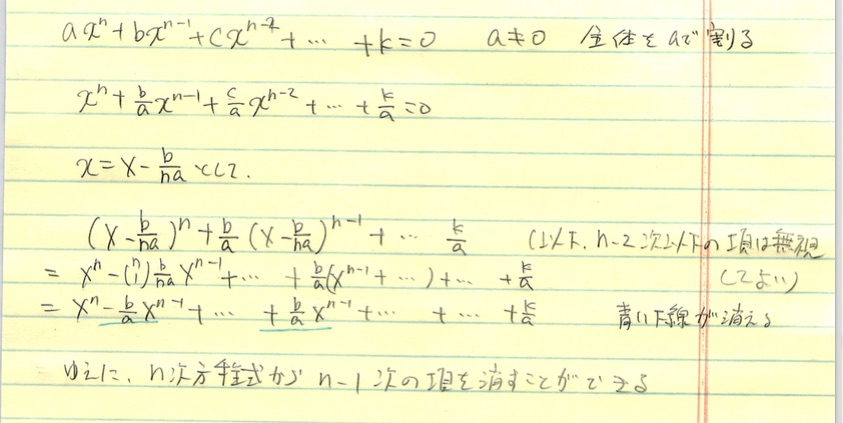 axⁿ + bxⁿ⁻¹ + cxⁿ⁻² + ⋯ + k = 0 a ≠ 0 全体を aで割る
xⁿ + b/a xⁿ⁻¹ + c/a xⁿ⁻² + ⋯ + k/a = 0
x = X - b/na として.
(X - b/na)ⁿ + b/a (X - b/na)ⁿ⁻¹ + ⋯ k/a (以下、n-2次以下の項は無視
= Xⁿ - (n 1) b/na Xⁿ⁻¹ + ⋯ + b/a (Xⁿ⁻¹ + ⋯) + ⋯ + k/a してよい)
= Xⁿ - b/a Xⁿ⁻¹ + ⋯ + b/a Xⁿ⁻¹ + ⋯ + ⋯ + k/a 青い下線が消える
ゆえに、n次方程式から n-1次の項を消すことができる